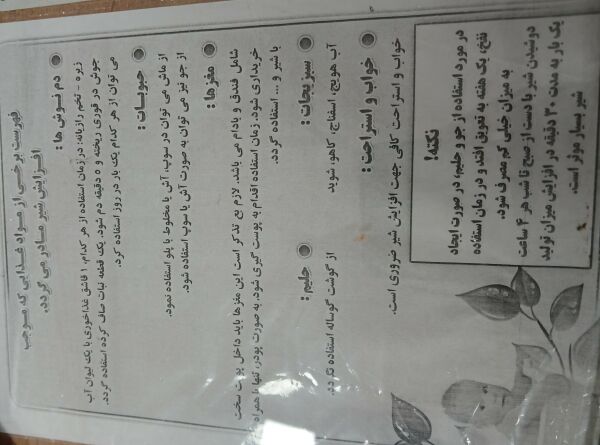 فهرست برخی از مواد غذایی که موجب
افزایش شیر مادر می گردد.
دم نوش ها :
زیره - تخم رازیانه: در زمان استفاده از هر کدام، ۱ قاشق غذاخوری با یک لیوان آب
جوش در قوری ریخته و ۵ دقیقه دم شود. یک قطعه نبات صاف کرده استفاده گردد.
می توان از هر کدام یک بار در روز استفاده کرد.
حبوبات :
از ماش می توان در سوپ، آش یا مخلوط با پلو استفاده نمود.
از جو نیز می توان به صورت آش یا سوپ استفاده شود.
مغزها :
شامل فندق و بادام می باشد. لازم بع تذکر است این مغزها باید داخل پوست سخت
خریداری شود. زمان استفاده اقدام به پوست گیری شود. به صورت پودر، تنها یا همراه
با شیر و ... استفاده گردد.
سبزیجات :
آب هویج، اسفناج، کاهو، شوید
حلیم :
از گوشت گوساله استفاده گردد.
خواب و استراحت :
خواب و استراحت کافی جهت افزایش شیر ضروری است.
نکته!
در مورد استفاده از جو و حلیم، در صورت ایجاد
نفخ، یک هفته به تعویق افتد و در زمان استفاده
به میزان خیلی کم مصرف شود.
دوشیدن شیر با دست از صبح تا شب هر ۴ ساعت
یک بار به مدت ۳۰ دقیقه در افزایش میزان تولید
شیر بسیار موثر است.